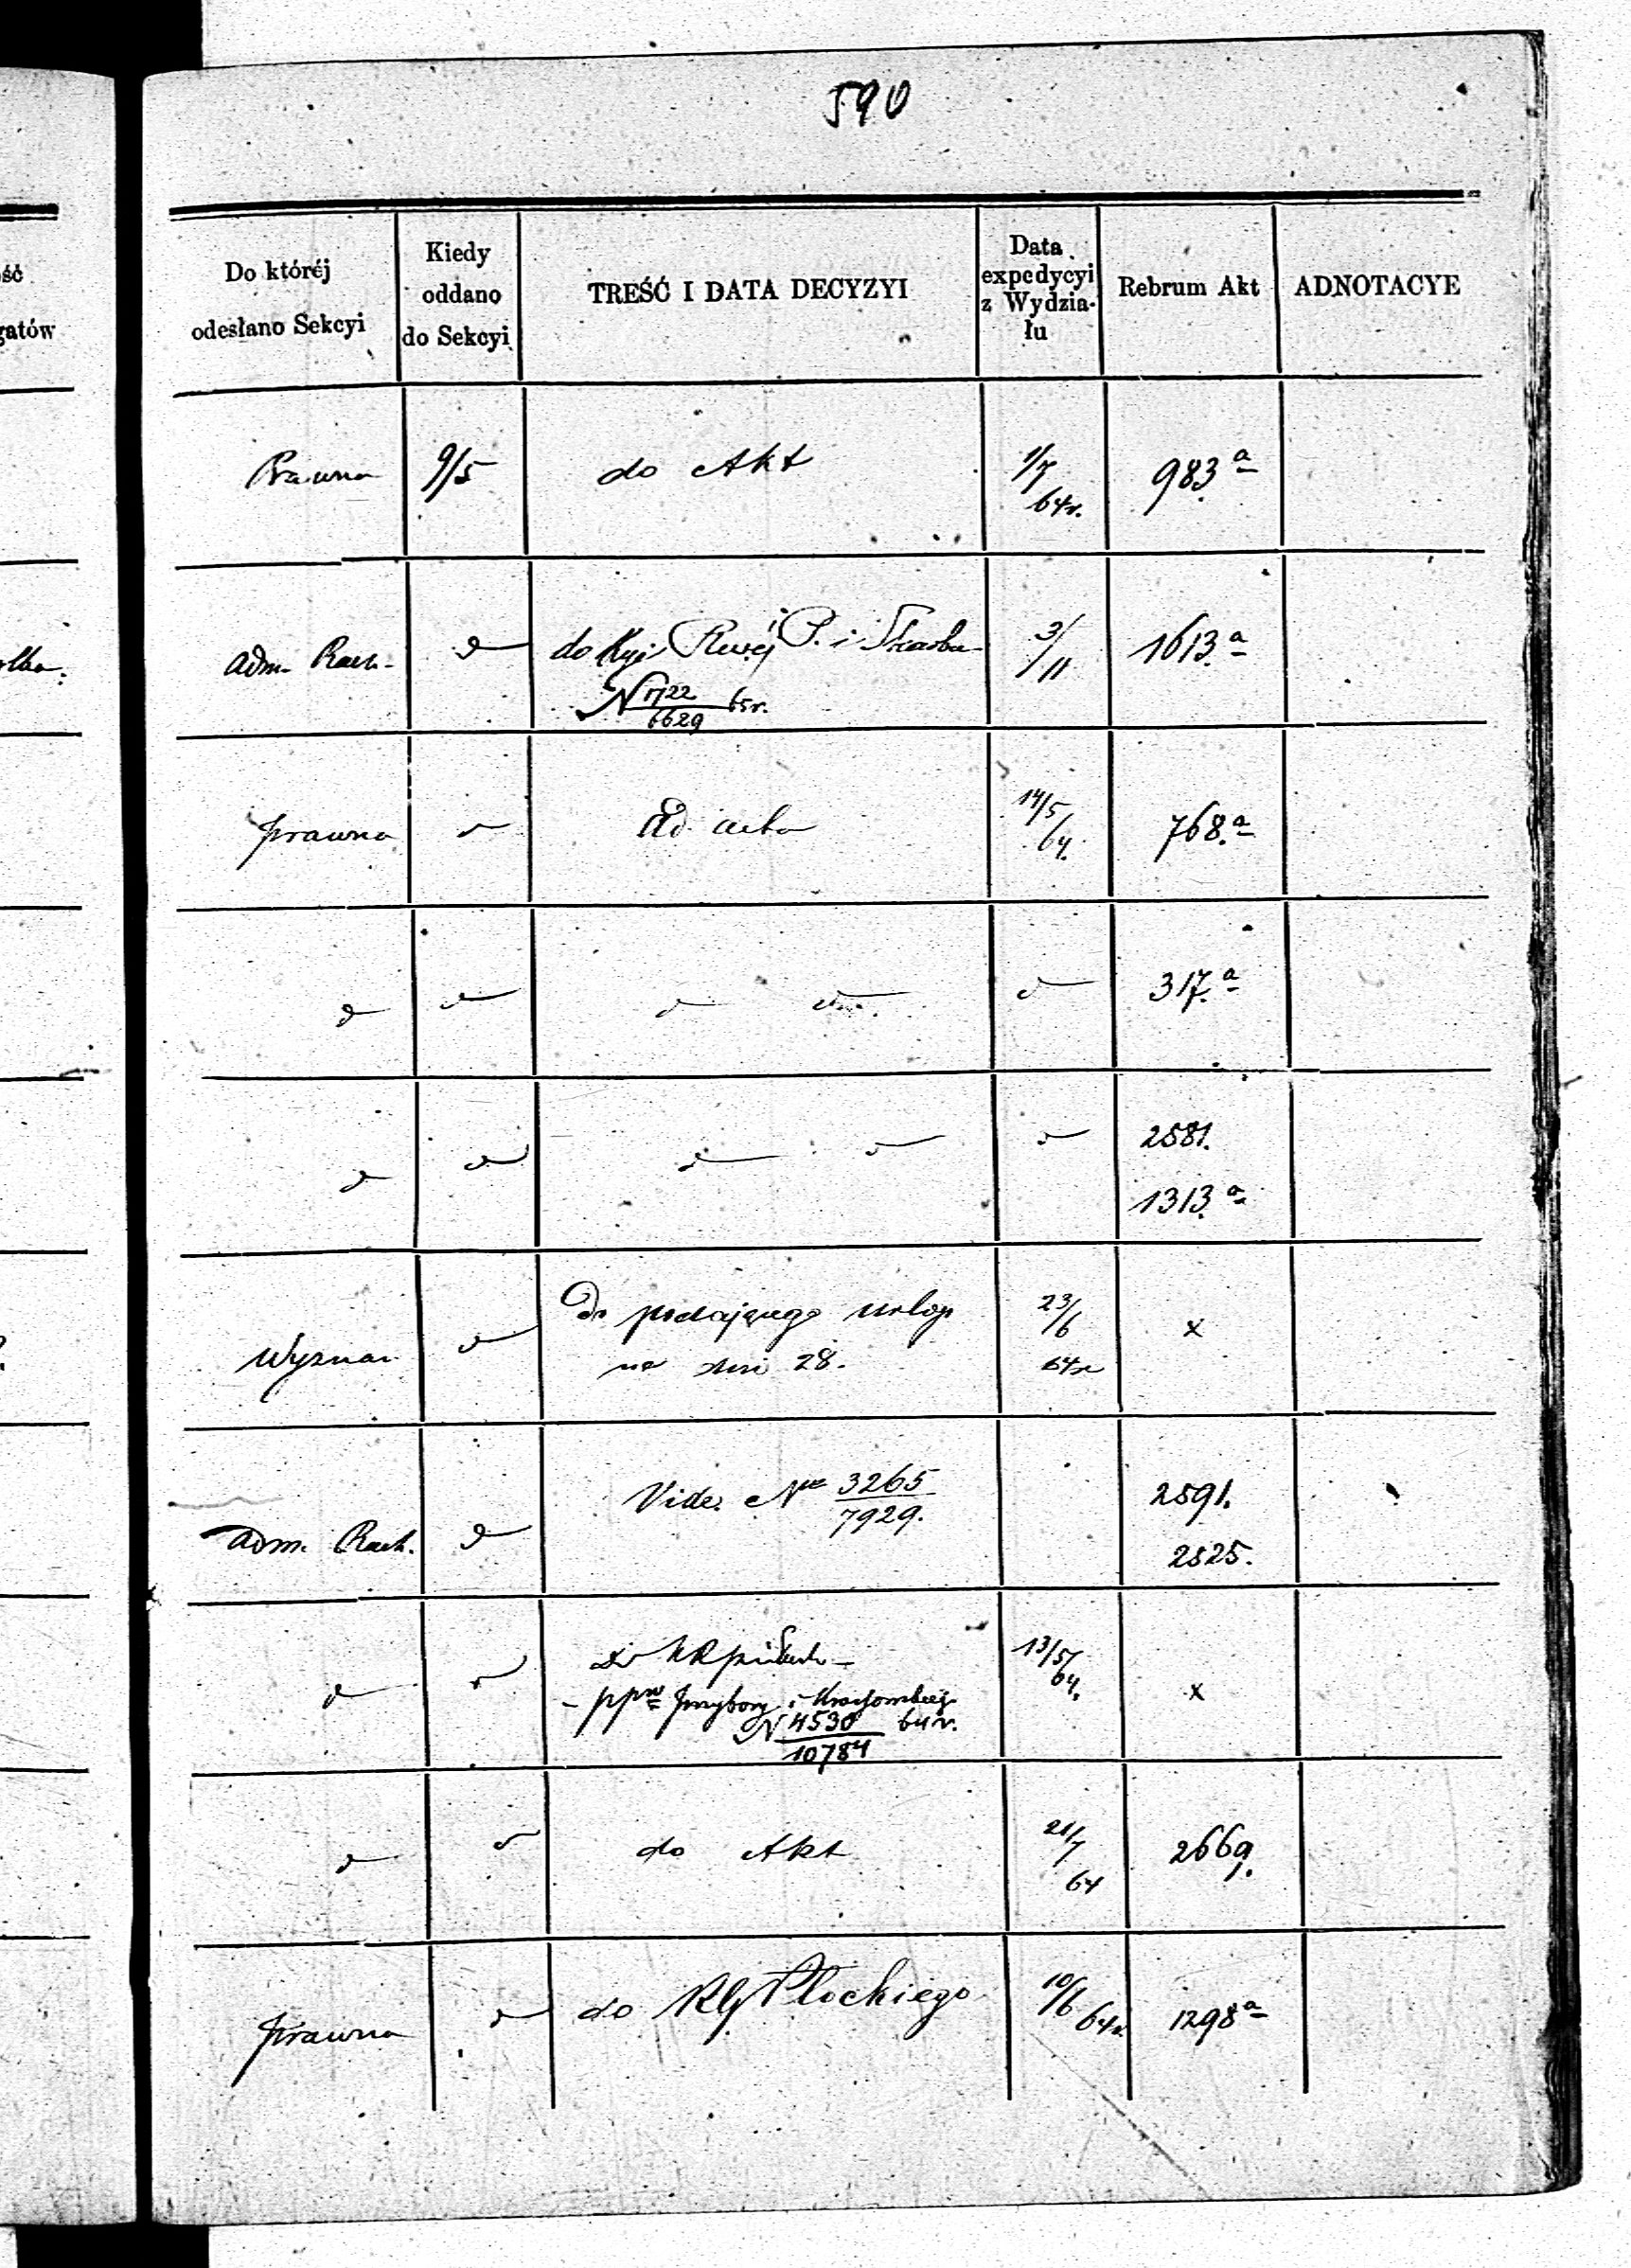 590
ść
gatów
Do któréj
odesłano Sekcyi
Kiedy
oddano
do Sekcyi
TREŚĆ I DATA DECYZYI
Data
expedycyi
z Wydzia-
łu
Rebrum Akt
ADNOTACYE
Prawna 9/5 do Akt 1/7 64r. 983.a
Adm. Rach. do Kyi P. i Skarbu 3/11 1613.a
N 1722/6629 65r.
Prawna Ad acta 14/5 64. 768.a
317.a
2581.
1313.a
Wyznań Do podającego urlop 23/6 x
na dni 28. 64r
Adm. Rach. Vide. No 3265/7929. 2591.
2525.
13/5 64. x
N 4530/10784 64r.
do Akt 21/7 64 2669.
Prawna do RG Płockiego 10/6 64r. 1298a